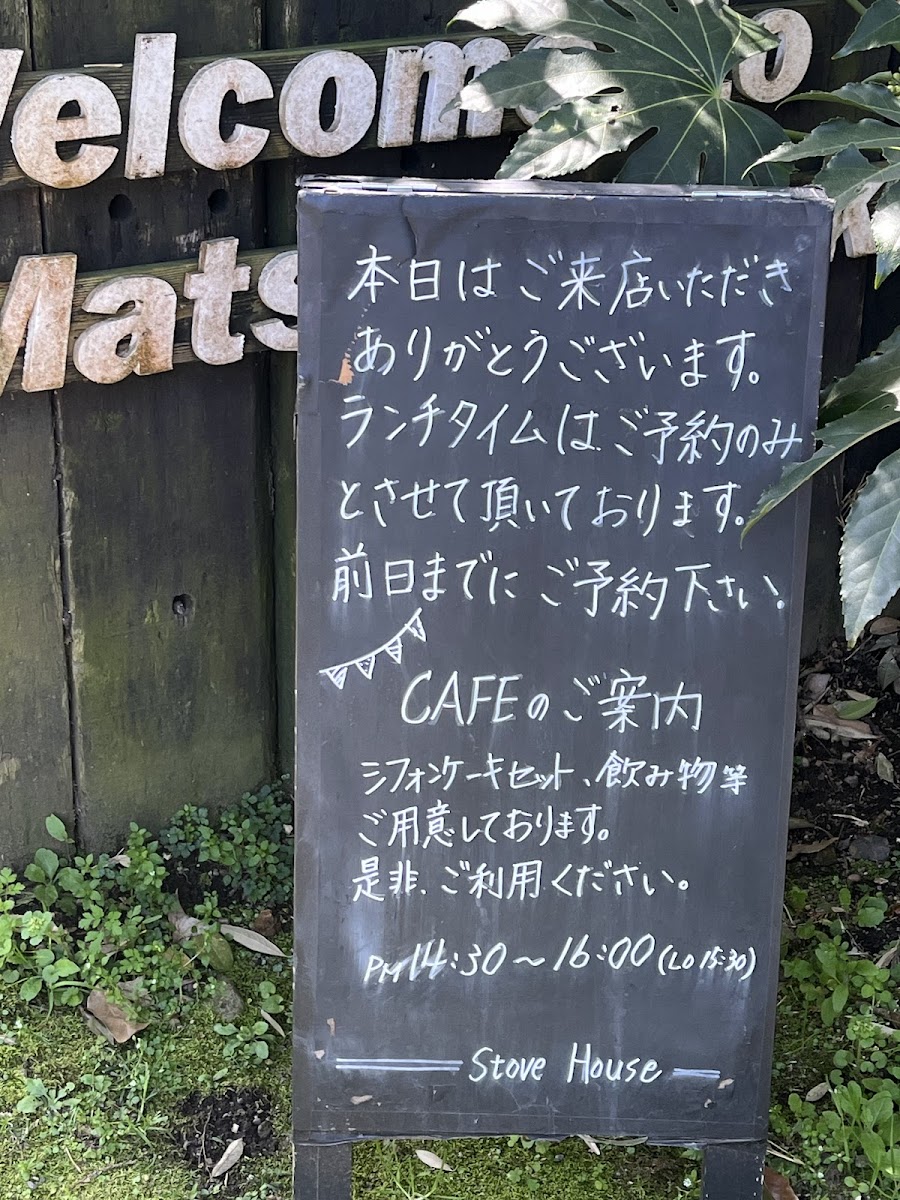 Welcome to
Mats
本日はご来店いただき
ありがとうございます。
ランチタイムはご予約のみ
とさせて頂いております。
前日までにご予約下さい。
CAFEのご案内
シフォンケーキセット、飲み物等
ご用意しております。
是非、ご利用ください。
PM14:30〜16:00(LO 15:30)
Stove House